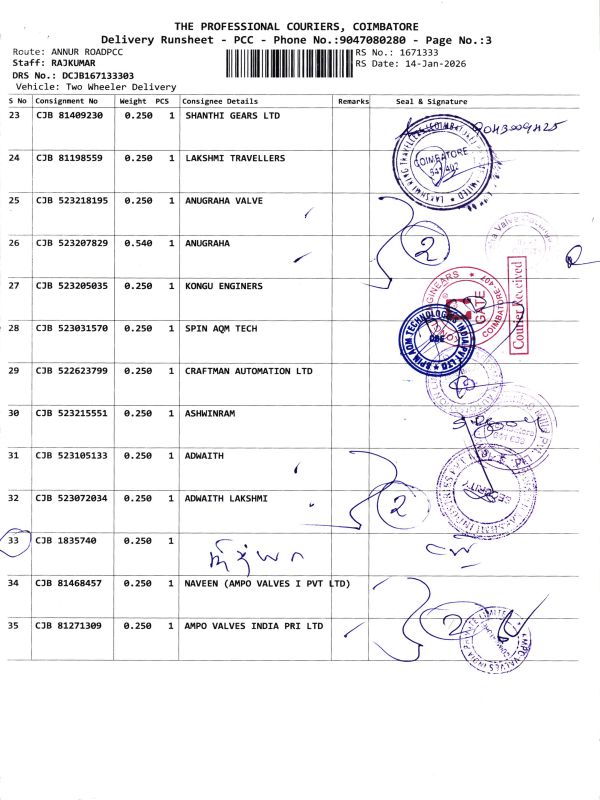 THE PROFESSIONAL COURIERS, COIMBATORE
Delivery Runsheet - PCC - Phone No.:9047080280 - Page No.:3
Route: ANNUR ROADPCC
RS No.: 1671333
Staff: RAJKUMAR
RS Date: 14-Jan-2026
DRS No.: DCJB167133303
Vehicle: Two Wheeler Delivery
S No Consignment No Weight PCS Consignee Details Remarks Seal & Signature
23 CJB 81409230 0.250 1 SHANTHI GEARS LTD
24 CJB 81198559 0.250 1 LAKSHMI TRAVELLERS
COIMBATORE
641 402
25 CJB 523218195 0.250 1 ANUGRAHA VALVE
26 CJB 523207829 0.540 1 ANUGRAHA 2
27 CJB 523205035 0.250 1 KONGU ENGINERS
GATE
COIMBATORE-407
Courier Received
28 CJB 523031570 0.250 1 SPIN AQM TECH
SPIN AQM TECHNOLOGIES INDIA PVT LTD
CBE
29 CJB 522623799 0.250 1 CRAFTMAN AUTOMATION LTD
30 CJB 523215551 0.250 1 ASHWINRAM
31 CJB 523105133 0.250 1 ADWAITH
SECURITY
32 CJB 523072034 0.250 1 ADWAITH LAKSHMI 2
33 CJB 1835740 0.250 1
34 CJB 81468457 0.250 1 NAVEEN (AMPO VALVES I PVT LTD)
35 CJB 81271309 0.250 1 AMPO VALVES INDIA PRI LTD 2
AMPO VALVES INDIA